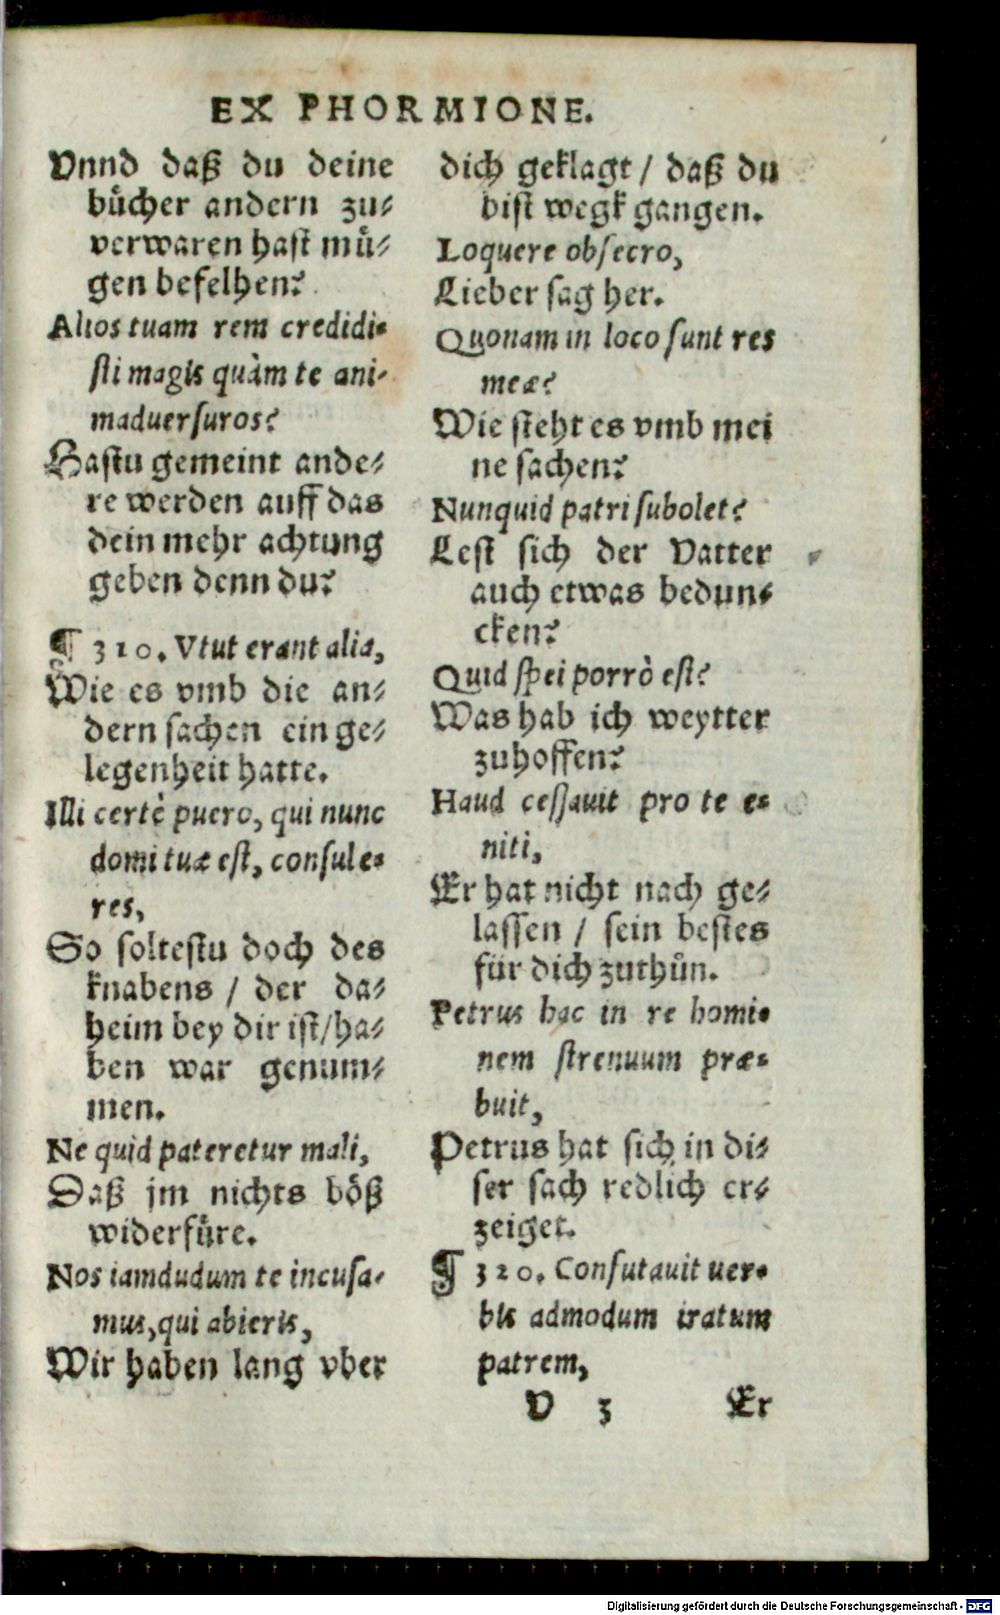 EX PHORMIONE.
Vnnd daß du deine
bücher andern zu-
verwaren hast mü-
gen befelhen?
Alios tuam rem credidi-
sti magis quàm te ani-
maduersuros?
Hastu gemeint ande-
re werden auff das
dein mehr achtung
geben denn du?
¶ 310. Vtut erant alia,
Wie es vmb die an-
dern sachen ein ge-
legenheit hatte.
Illi certè puero, qui nunc
domi tuæ est, consule-
res,
So soltestu doch des
knabens / der da-
heim bey dir ist/ha-
ben war genum-
men.
Ne quid pateretur mali,
Daß jm nichts böß
widerfüre.
Nos iamdudum te incusa-
mus, qui abieris,
Wir haben lang vber
dich geklagt / daß du
bist wegk gangen.
Loquere obsecro,
Lieber sag her.
Quonam in loco sunt res
meæ?
Wie steht es vmb mei
ne sachen?
Nunquid patri subolet?
Lest sich der Vatter
auch etwas bedun-
cken?
Quid spei porrò est?
Was hab ich weytter
zuhoffen?
Haud cessauit pro te e-
niti,
Er hat nicht nach ge-
lassen / sein bestes
für dich zuthůn.
Petrus hac in re homi-
nem strenuum præ-
buit,
Petrus hat sich in di-
ser sach redlich er-
zeiget.
¶ 320. Confutauit uer-
bis admodum iratum
patrem,
V 3 Er
Digitalisierung gefördert durch die Deutsche Forschungsgemeinschaft - DFG